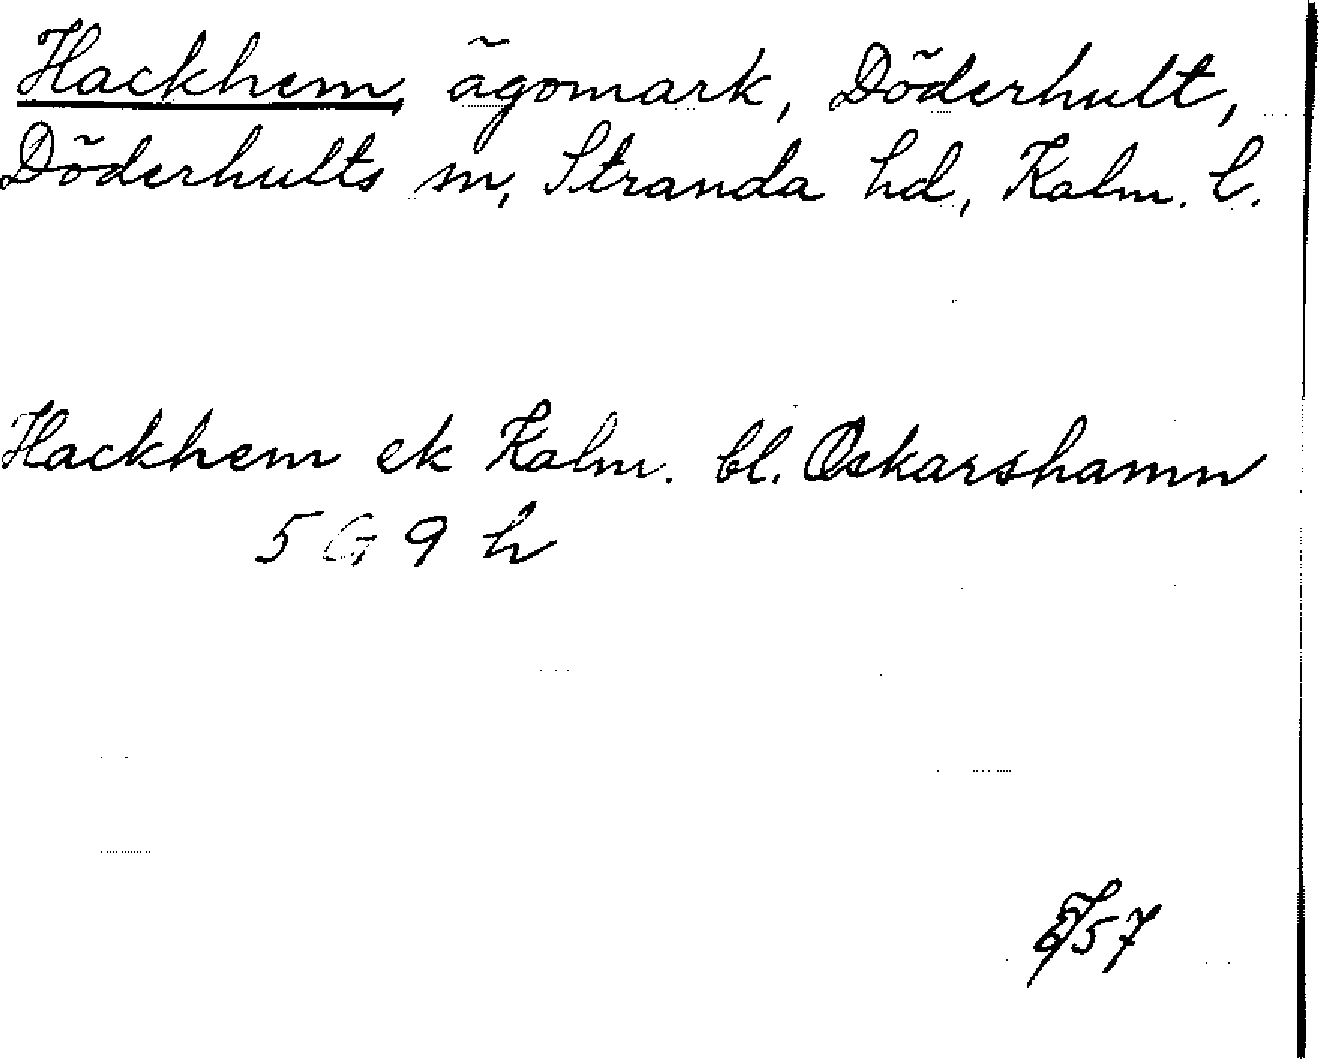 Hackhem, ägomark, Döderhult,
Döderhults sn, Stranda hd, Kalm. l.
Hackhem ek Kalm. bl. Oskarshamn
5 G 9 h
57